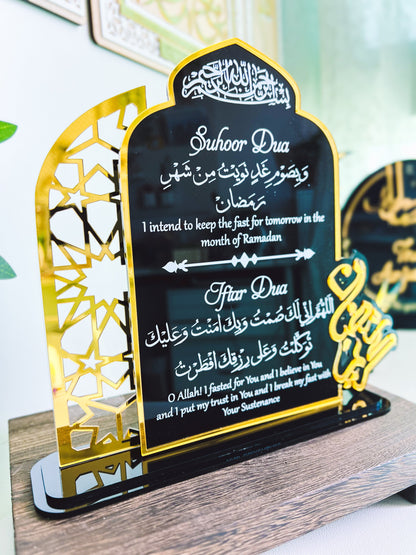 بسم الله الرحمن الرحيم
Suhoor Dua
وَبِصَوْمِ غَدٍ نَوَيْتُ مِنْ شَهْرِ
رَمَضَانَ
I intend to keep the fast for tomorrow in the
month of Ramadan
Iftar Dua
اَللّٰهُمَّ اِنِّى لَكَ صُمْتُ وَبِكَ اٰمَنْتُ وَعَلَيْكَ
تَوَكَّلْتُ وَعَلٰى رِزْقِكَ اَفْطَرْتُ
O Allah! I fasted for You and I believe in You
and I put my trust in You and I break my fast with
Your Sustenance